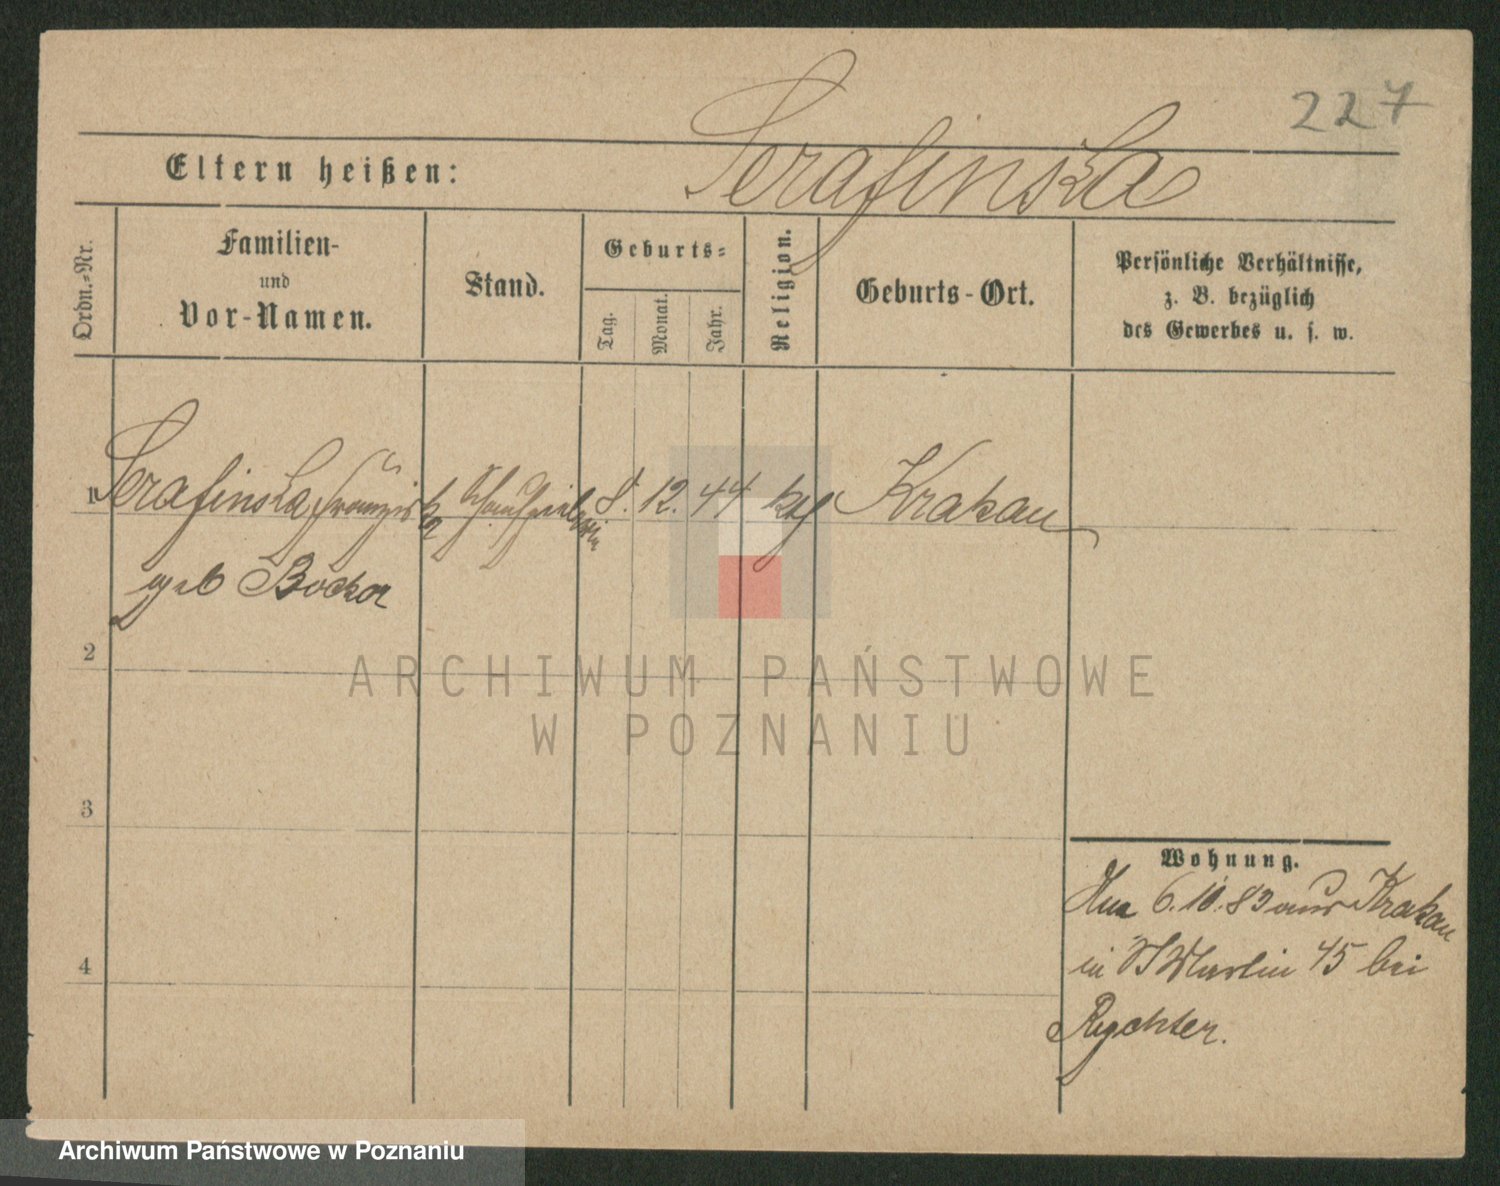 227
Serafinska
Eltern heißen:
Ordn.-Nr.
Familien-
und
Vor-Namen.
Stand.
Geburts-
Tag.
Monat.
Jahr.
Religion.
Geburts-Ort.
Persönliche Verhältnisse,
z. B. bezüglich
des Gewerbes u. s. w.
1 Serafinska, Franziska Schauspielerin 8. 12. 44 kth Krakau
geb
2
3
4
Wohnung.
6.10.83 aus Krakau
in St Martin 45 bei
Rychter.
ARCHIWUM PAŃSTWOWE
W POZNANIU
Archiwum Państwowe w Poznaniu